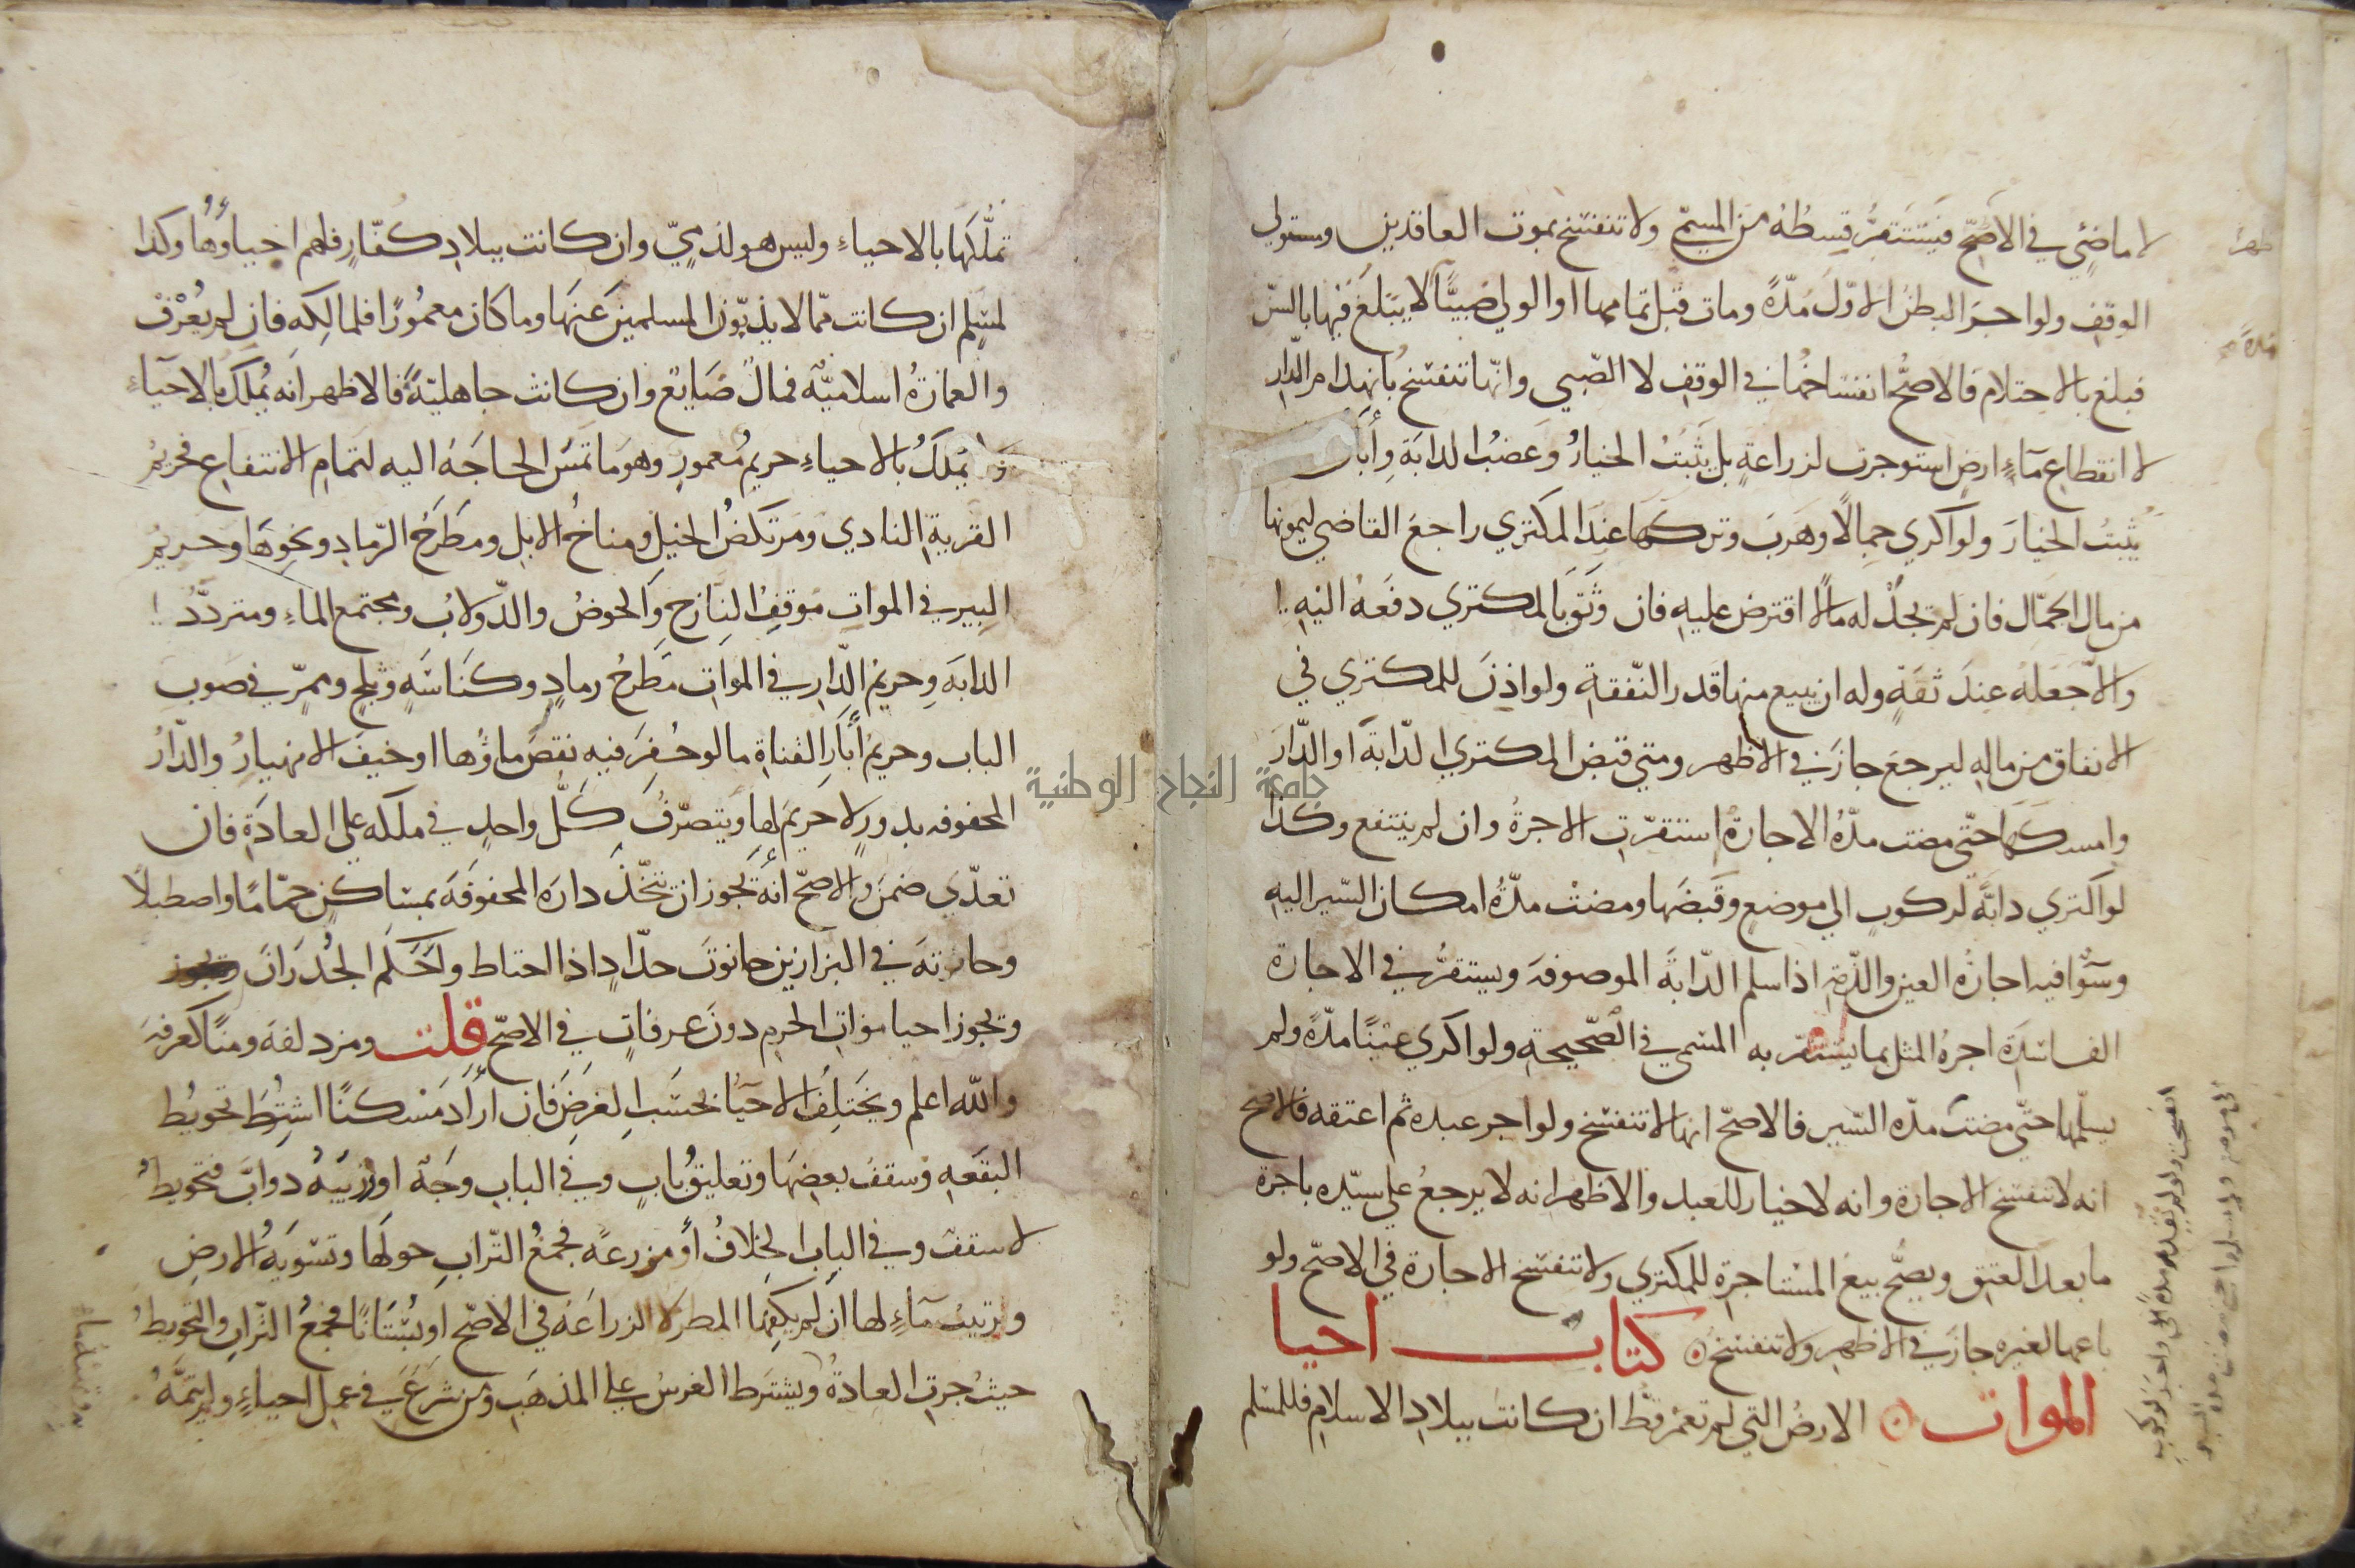 لا ماضي في الاصح فيستقر قسطه من المسمى ولا تنفسخ بموت العاقدين ومتولي
الوقف ولو اجر البطن الاول مدة ومات قبل تمامها او الولي صبيا لا يبلغ فيها بالسن
فبلغ بالاحتلام فالاصح انفساخها في الوقف لا الصبي وانها تنفسخ بانهدام الدار
لا انقطاع ماء ارض استوجرت لزراعة بل يثبت الخيار وغصب الدابة واباق
يثبت الخيار ولو اكرى جمالا وهرب وتركها عند المكتري راجع القاضي ليمونها
من مال الجمال فان لم يجد له مالا اقترض عليه فان وثق بالمكتري دفعه اليه
والا جعله عند ثقة وله ان يبيع منها قدر النفقة ولو اذن للمكتري في
الانفاق من ماله ليرجع جاز في الاظهر ومتى قبض المكتري الدابة او الدار
وامسكها حتى مضت مدة الاجارة استقرت الاجرة وان لم ينتفع وكذا
لو اكترى دابة لركوب الى موضع وقبضها ومضت مدة امكان السير اليه
وسوا فيه اجارة العين والذمة اذا سلم الدابة الموصوفة ويستقر في الاجارة
الفاسدة اجرة المثل بما يستقر به المسمى في الصحيحة ولو اكرى عينا مدة ولم
يسلمها حتى مضت مدة السير فالاصح انها لا تنفسخ ولو اجر عبده ثم اعتقه فالاصح
انه لا تنفسخ الاجارة وانه لا خيار للعبد والاظهر انه لا يرجع على سيده باجرة
ما بعد العتق ويصح بيع المستاجرة للمكتري ولا تنفسخ الاجارة في الاصح ولو
باعها لغيره جاز في الاظهر ولا تنفسخ كتاب احيا
الموات الارض التي لم تعمر قط ان كانت ببلاد الاسلام فللمسلم
تملكها بالاحياء وليس هو لذمي وان كانت ببلاد كفار فلهم احياؤها وكذا
لمسلم ان كانت مما لا يذبون المسلمين عنها وما كان معمورا فلمالكه فان لم يعرف
والعمارة اسلامية فمال ضايع وان كانت جاهلية فالاظهر انه يملك بالاحياء
ولا يملك بالاحياء حريم معمور وهو ما تمس الحاجة اليه لتمام الانتفاع فحريم
القرية النادي ومرتكض الخيل ومناخ الابل ومطرح الرماد ونحوها وحريم
البير في الموات موقف النازح والحوض والدولاب ومجتمع الماء ومتردد
الدابة وحريم الدار في الموات مطرح رماد وكناسة وثلج وممر في صوب
الباب وحريم أبار القناة ما لو حفر فيه نقص ماؤها او خيف الانهيار والدار
المحفوفة بدور لا حريم لها ويتصرف كل واحد في ملكه على العادة فان
تعدى ضمن والاصح انه يجوز ان يتخذ داره المحفوفة بمساكن حماما واصطبلا
وحانوته في البزازين حانوت حداد اذا احتاط واحكم الجدران
ويجوز احيا موات الحرم دون عرفات في الاصح قلت ومزدلفة ومنا كعرفة
والله اعلم ويختلف الاحيا بحسب الغرض فان اراد مسكنا اشترط تحويط
البقعة وسقف بعضها وتعليق باب وفي الباب وجه او زريبة دواب فتحويط
لا سقف وفي الباب الخلاف أو مزرعة فجمع التراب حولها وتسوية الارض
وترتيب ماء لها ان لم يكفها المطر لا الزراعة في الاصح او بستانا فجمع التراب والتحويط
حيث جرت العادة ويشترط الغرس على المذهب ومن شرع في عمل احياء ولم يتمه
جامعة النجاح الوطنية